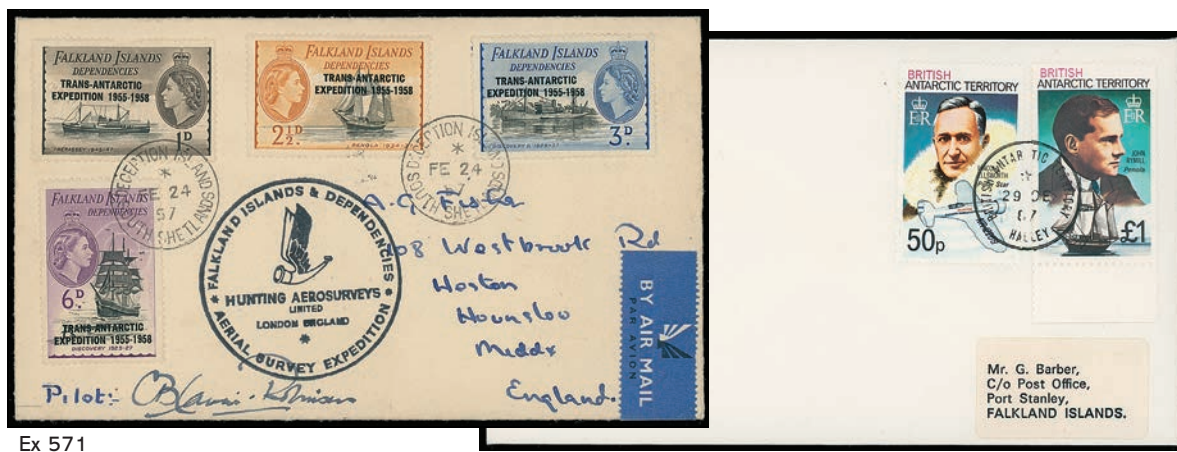 FALKLAND ISLANDS
DEPENDENCIES
TRANS-ANTARCTIC
EXPEDITION 1955-1958
1D
FALKLAND ISLANDS
DEPENDENCIES
TRANS-ANTARCTIC
EXPEDITION 1955-1958
2½D.
PENOLA 1934-37
FALKLAND ISLANDS
DEPENDENCIES
TRANS-ANTARCTIC
EXPEDITION 1955-1958
3D.
FALKLAND ISLANDS
DEPENDENCIES
6D.
TRANS-ANTARCTIC
EXPEDITION 1955-1958
DISCOVERY 1925-27
DECEPTION ISLAND
FE 24
57
SOUTH SHETLANDS
DECEPTION ISLAND
FE 24
7
SOUTH SHETLANDS
FALKLAND ISLANDS & DEPENDENCIES
HUNTING AEROSURVEYS
LIMITED
LONDON ENGLAND
AERIAL SURVEY EXPEDITION
A.G. Fisher
08 Westbrook Rd
Heston
Hounslow
Middx
England.
BY AIR MAIL
PAR AVION
Pilot:-
BRITISH
ANTARCTIC TERRITORY
ER
50p
BRITISH
ANTARCTIC TERRITORY
ER
JOHN
RYMILL
Penola
£1
29 DE
87
HALLEY
Mr. G. Barber,
C/o Post Office,
Port Stanley,
FALKLAND ISLANDS.
Ex 571